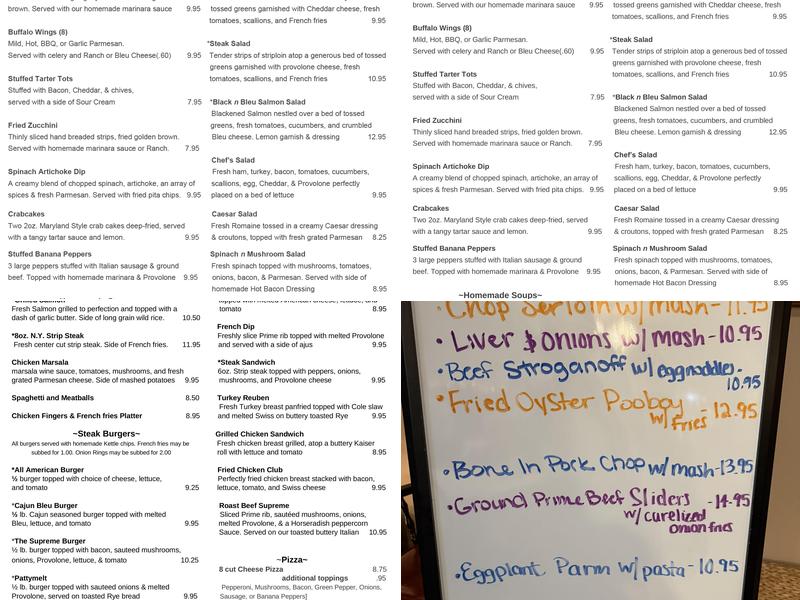 brown. Served with our homemade marinara sauce 9.95
Buffalo Wings (8)
Mild, Hot, BBQ, or Garlic Parmesan.
Served with celery and Ranch or Bleu Cheese(.60) 9.95
Stuffed Tarter Tots
Stuffed with Bacon, Cheddar, & chives,
served with a side of Sour Cream 7.95
Fried Zucchini
Thinly sliced hand breaded strips, fried golden brown.
Served with homemade marinara sauce or Ranch. 7.95
Spinach Artichoke Dip
A creamy blend of chopped spinach, artichoke, an array of
spices & fresh Parmesan. Served with fried pita chips. 9.95
Crabcakes
Two 2oz. Maryland Style crab cakes deep-fried, served
with a tangy tartar sauce and lemon. 9.95
Stuffed Banana Peppers
3 large peppers stuffed with Italian sausage & ground
beef. Topped with homemade marinara & Provolone 9.95
tossed greens garnished with Cheddar cheese, fresh
tomatoes, scallions, and French fries 9.95
*Steak Salad
Tender strips of striploin atop a generous bed of tossed
greens garnished with provolone cheese, fresh
tomatoes, scallions, and French fries 10.95
*Black n Bleu Salmon Salad
Blackened Salmon nestled over a bed of tossed
greens, fresh tomatoes, cucumbers, and crumbled
Bleu cheese. Lemon garnish & dressing 12.95
Chef's Salad
Fresh ham, turkey, bacon, tomatoes, cucumbers,
scallions, egg, Cheddar, & Provolone perfectly
placed on a bed of lettuce 9.95
Caesar Salad
Fresh Romaine tossed in a creamy Caesar dressing
& croutons, topped with fresh grated Parmesan 8.25
Spinach n Mushroom Salad
Fresh spinach topped with mushrooms, tomatoes,
onions, bacon, & Parmesan. Served with side of
homemade Hot Bacon Dressing 8.95
brown. Served with our homemade marinara sauce 9.95
Buffalo Wings (8)
Mild, Hot, BBQ, or Garlic Parmesan.
Served with celery and Ranch or Bleu Cheese(.60) 9.95
Stuffed Tarter Tots
Stuffed with Bacon, Cheddar, & chives,
served with a side of Sour Cream 7.95
Fried Zucchini
Thinly sliced hand breaded strips, fried golden brown.
Served with homemade marinara sauce or Ranch. 7.95
Spinach Artichoke Dip
A creamy blend of chopped spinach, artichoke, an array of
spices & fresh Parmesan. Served with fried pita chips. 9.95
Crabcakes
Two 2oz. Maryland Style crab cakes deep-fried, served
with a tangy tartar sauce and lemon. 9.95
Stuffed Banana Peppers
3 large peppers stuffed with Italian sausage & ground
beef. Topped with homemade marinara & Provolone 9.95
~Homemade Soups~
tossed greens garnished with Cheddar cheese, fresh
tomatoes, scallions, and French fries 9.95
*Steak Salad
Tender strips of striploin atop a generous bed of tossed
greens garnished with provolone cheese, fresh
tomatoes, scallions, and French fries 10.95
*Black n Bleu Salmon Salad
Blackened Salmon nestled over a bed of tossed
greens, fresh tomatoes, cucumbers, and crumbled
Bleu cheese. Lemon garnish & dressing 12.95
Chef's Salad
Fresh ham, turkey, bacon, tomatoes, cucumbers,
scallions, egg, Cheddar, & Provolone perfectly
placed on a bed of lettuce 9.95
Caesar Salad
Fresh Romaine tossed in a creamy Caesar dressing
& croutons, topped with fresh grated Parmesan 8.25
Spinach n Mushroom Salad
Fresh spinach topped with mushrooms, tomatoes,
onions, bacon, & Parmesan. Served with side of
homemade Hot Bacon Dressing 8.95
Grilled Salmon
Fresh Salmon grilled to perfection and topped with a
dash of garlic butter. Side of long grain wild rice. 10.50
*8oz. N.Y. Strip Steak
Fresh center cut strip steak. Side of French fries. 11.95
Chicken Marsala
marsala wine sauce, tomatoes, mushrooms, and fresh
grated Parmesan cheese. Side of mashed potatoes 9.95
Spaghetti and Meatballs 8.50
Chicken Fingers & French fries Platter 8.95
~Steak Burgers~
All burgers served with homemade Kettle chips. French fries may be
subbed for 1.00. Onion Rings may be subbed for 2.00
*All American Burger
½ burger topped with choice of cheese, lettuce,
and tomato 9.25
*Cajun Bleu Burger
½ lb. Cajun seasoned burger topped with melted
Bleu, lettuce, and tomato 9.95
*The Supreme Burger
½ lb. burger topped with bacon, sauteed mushrooms,
onions, Provolone, lettuce, & tomato 10.25
*Pattymelt
½ lb. burger topped with sauteed onions & melted
Provolone, served on toasted Rye bread 9.95
topped with melted American cheese, lettuce, and
tomato 8.95
French Dip
Freshly slice Prime rib topped with melted Provolone
and served with a side of ajus 9.95
*Steak Sandwich
6oz. Strip steak topped with peppers, onions,
mushrooms, and Provolone cheese 9.95
Turkey Reuben
Fresh Turkey breast panfried topped with Cole slaw
and melted Swiss on buttery toasted Rye 9.95
Grilled Chicken Sandwich
Fresh chicken breast grilled, atop a buttery Kaiser
roll with lettuce and tomato 9.95
Fried Chicken Club
Perfectly fried chicken breast stacked with bacon,
lettuce, tomato, and Swiss cheese 9.95
Roast Beef Supreme
Sliced Prime rib, sautéed mushrooms, onions,
melted Provolone, & a Horseradish peppercorn
Sauce. Served on our toasted buttery Italian 10.95
~Pizza~
8 cut Cheese Pizza 8.75
additional toppings .95
Pepperoni, Mushrooms, Bacon, Green Pepper, Onions,
Sausage, or Banana Peppers]
• Chop Serloin w/ mash - 11.95
• Liver & onions w/ mash - 10.95
• Beef Stroganoff w/ eggnoddles -
10.95
• Fried Oyster Pooboy - 12.95
w/ Fries
• Bone In Pork Chop w/ mash - 13.95
• Ground Prime Beef Sliders - 14.95
w/ curelized
onion fries
• Eggplant Parm w/ pasta - 10.95